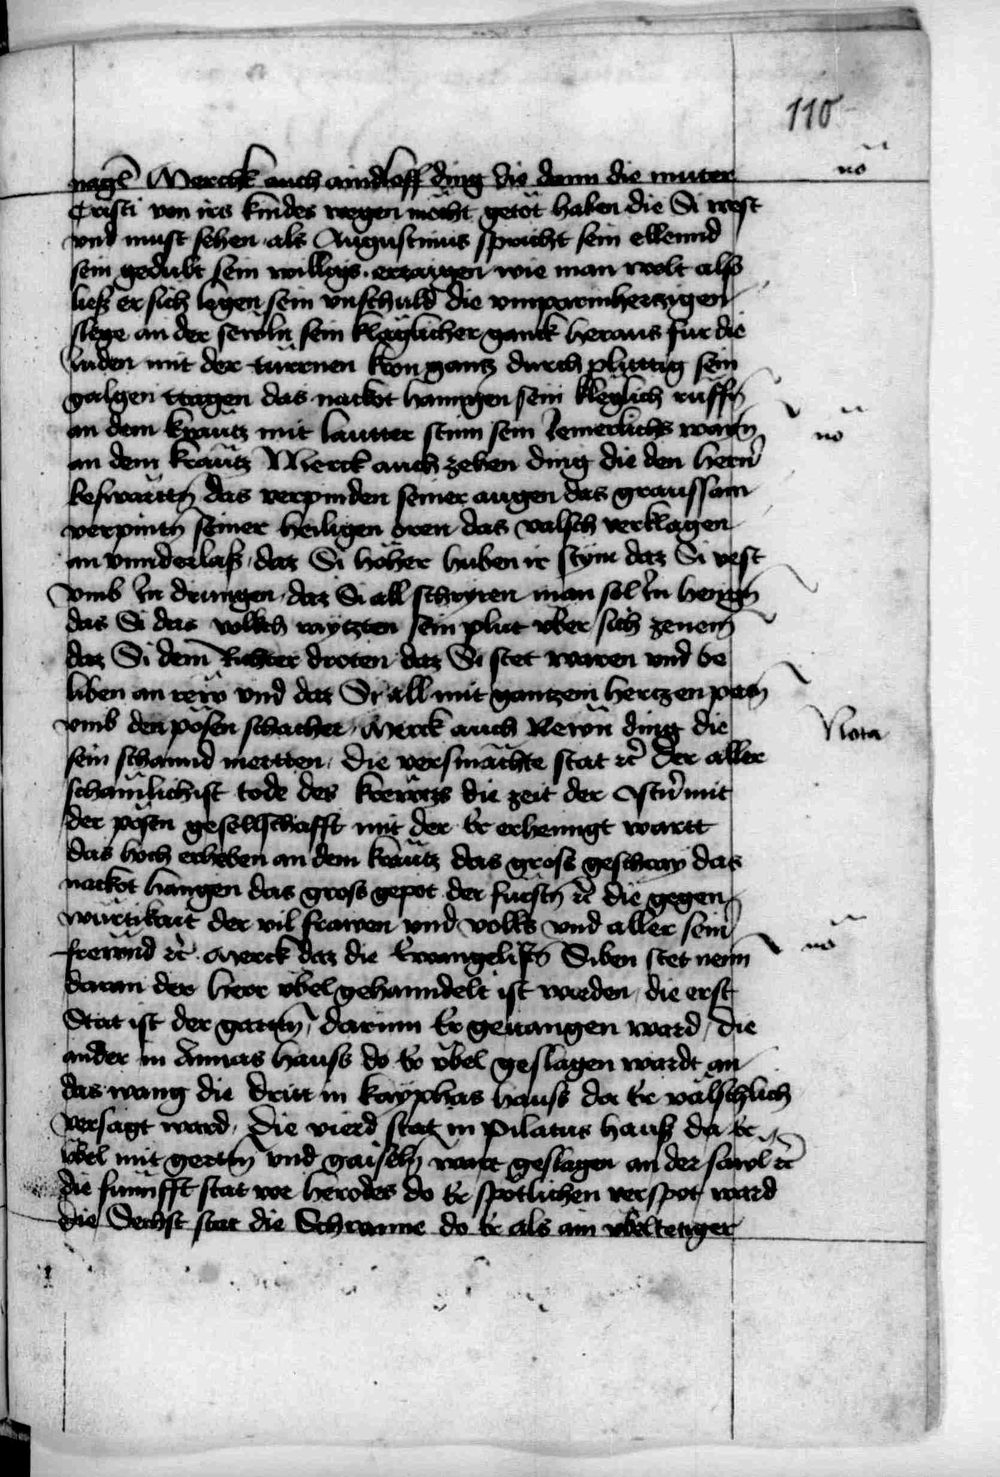 110
nagel Merck auch aindloff ding die dann die muter
no
Cristi von irs kindes wegen möcht getöt haben die Si west
vnd must sehen als Augustinus spricht sein ellennd
sein gedult sein willigs erzaigen wie man wolt also
ließ er sich legen sein vnschuld die vnparmhertzigen
slege an der sewln sein kläglicher ganck heraus für die
Juden mit der türrnen kron gantz durch pluttig sein
galgen tragen das nackot hanngen sein kleglich rüffn̄
an dem kräutz mit lautter stim sein Jemerlichs wain̄
no
an dem kräutz Merck auch zehen ding die den hern̄
beswärttn̄ das verpinden seiner augen das graussam
verpintn̄ seiner heiligen oren das valsch verklagen
an vnnderlaß daz Si höher huben ir stym daz Si vest
vmb In drungen daz Si all schryren man sol In hengn̄
das Si das volkch raytzten sein plut vber sich zenem̄
daz Si dem Richter droten daz Si stet waren vnd be
liben an rew vnd daz Si all mit gantzem hertzen patn̄
vmb den pösen schacher Merck auch Newn ding die
Nota
sein schannd mertten die versmächte stat ꝛc̄ der aller
schamlichist tode des krewtz die zeit der Ostern̄ mit
der pösen gesellschafft mit der Er erhenngt wartt
das hoch erheben an dem kräutz das gross geschray das
nackot hangen das gross gepot der fürstn̄ ꝛc̄ die gegen
würtikait der vil frawen vnd volks vnd aller sein̄
frewnd ꝛc̄ Merck daz die Ewangelistn̄ Siben stet nenn̄
no
daran der herr vbel gehanndelt ist worden die erst
Stat ist der gartn̄ darinn Er geuangen ward die
ander in Annas hauss do Er vbel geslagen wardt an
das wang die dritt in kayphas hauss da Er välschlich
versagt ward die vierd stat in Pilatus hauß da Er
vbel mit gertn̄ vnd gaisln̄ wart geslagen an der sawl ꝛc̄
die fünfft stat vor herodes do Er spötlichen verspot ward
die Sechst stat die Schranne do Er als ain vbeltetiger